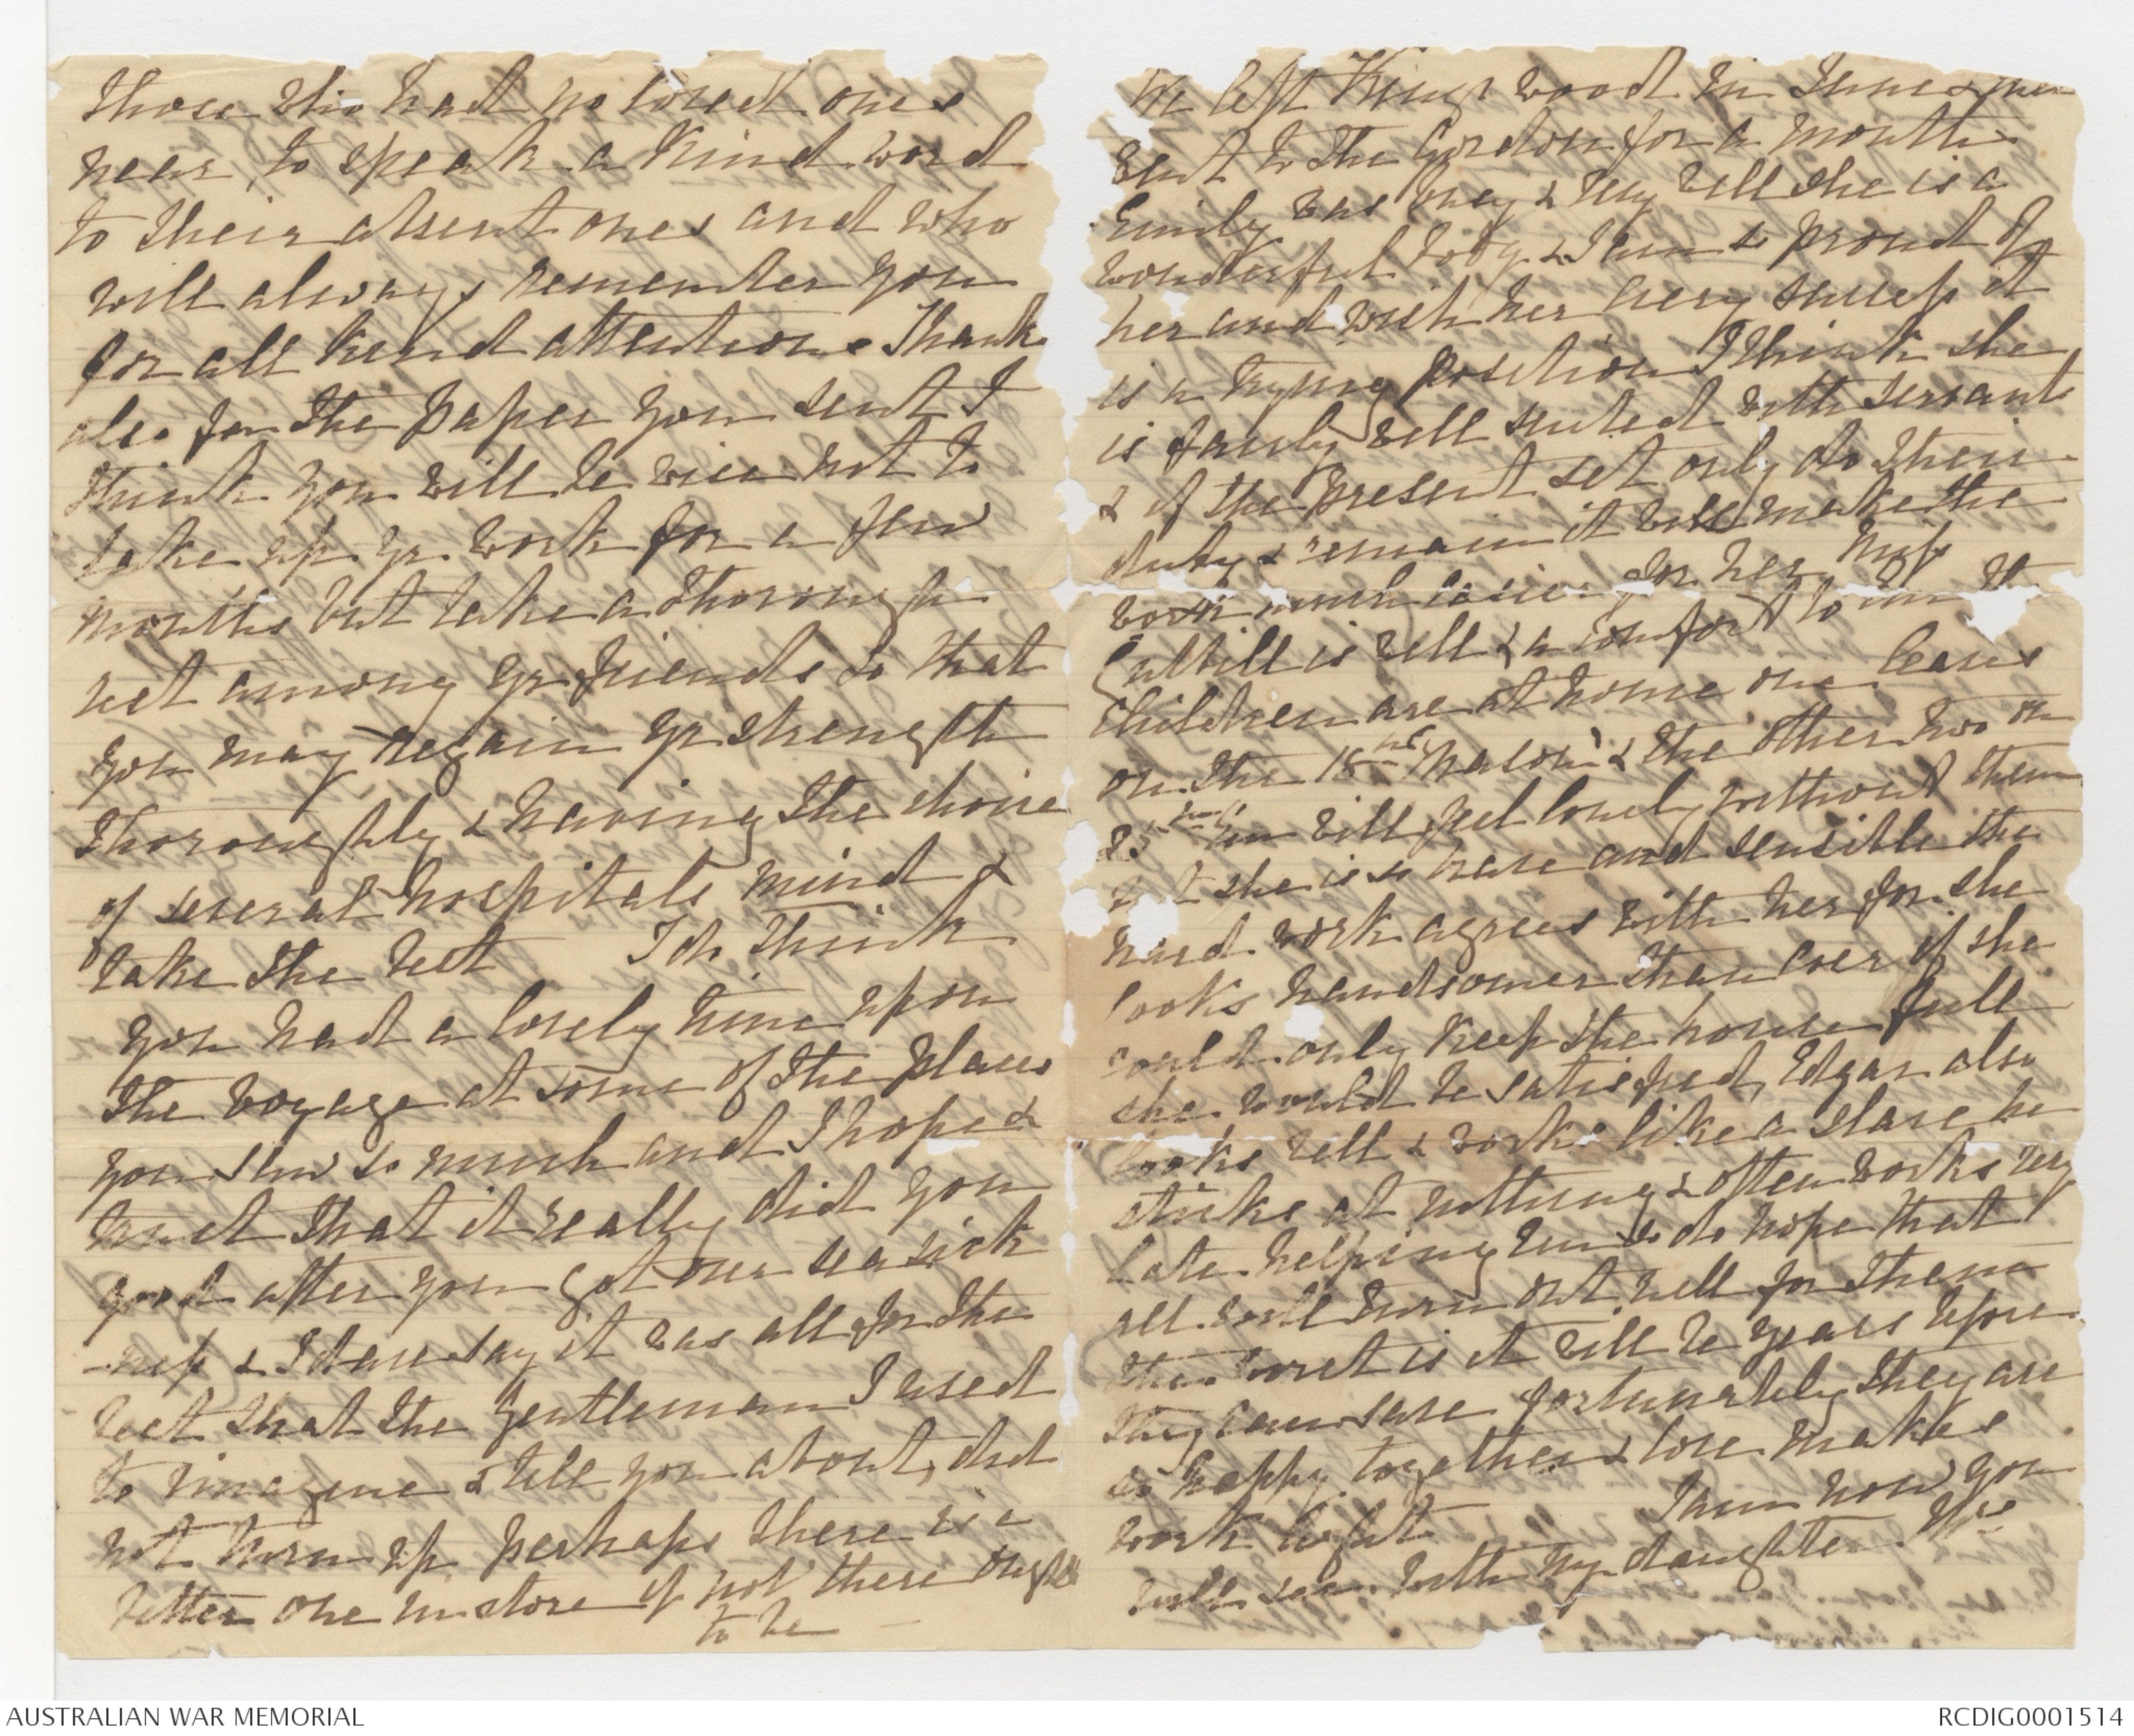 those who had no loved ones
near, to speak a kind word
to their absent ones and who
will always remember you
for all kind attentions Thanks
also for the paper you sent I
think you will be wise not to
take up yr work for a few
months but take a thorough
rest among yr friends so that
you may regain yr strength
thoroughly & having the choice
of several hospitals mind &
take the best I do think
you had a lovely time upon
the voyage at some of the places
you saw so much and I hope &
trust that it really did you
good after you got over sea sick
-ness & I dare say it was all for the
best that the gentleman I used
to imagine & tell you about, did
not turn up perhaps there is a
better one in store if not there ought
to be
We left Kingswood in June & then
went to the Gordon for a month
Emily was busy & very well she is a
wonderful body & I am so proud of
her and wish her every success it
is a trying position I think she
is fairly well suited with servants
& if the present set only do their
duty & remain it will make the
work much easier for her Miss
is well & a comfort to
children are at home one leaves
on the 18th & the other two on
25th will feel lonely without them
but she is so brave and sensible the
hard work agrees with her for she
looks handsomer than ever if she
could only keep the house full
she would be satisfied, Edgar also
looks well & works like a slave he
sticks at nothing & often works very
late helping so do hope that
all will turn out well for them
the worst is it will be years before
they can save fortunately they are
so happy together & love makes
work light I am now you
will see with my daughter Mrs
AUSTRALIAN WAR MEMORIAL
RCDIG0001514